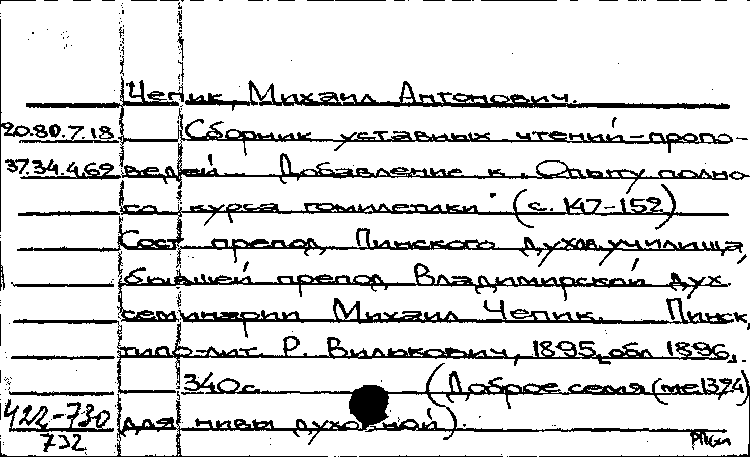 Чепик, Михаил Антонович.
20.80.7.18 Сборник уставных чтений-пропо-
37.34.4.69 ведей... Добавление к „Опыту полно-
го курса гомилетики" (с. 147-152)
Сост. препод. Пинского духов. училища,
бывшей препод. Владимирской дух.
семинарии Михаил Чепик. Пинск,
типо-лит. Р. Вилькович, 1895, обл. 1896.
340 с. (Доброе семя
422-730 для нивы духовной).
732